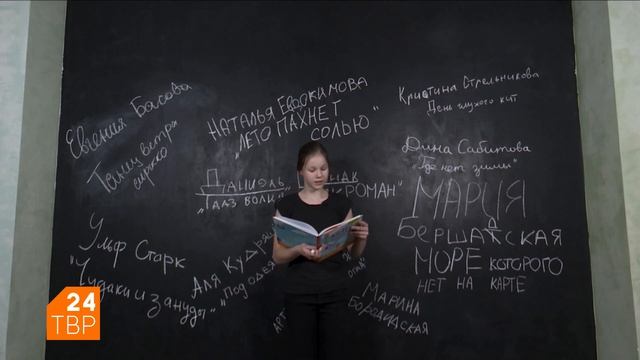 Евгения Басова
НАТАЛЬЯ ЕВДОКИМОВА
"ЛЕТО ПАХНЕТ
СОЛЬЮ"
Кристина Стрельникова
День глухого кит
Дина Сабитова
"Где нет зимы"
ДАНИЭЛЬ
РОМАН"
МАРИЯ
БЕРШАДСКАЯ
МОРЕ КОТОРОГО
НЕТ НА КАРТЕ
Ульф Старк
"Чудаки и зануды"
Аля Кудря
"Под одея
АРТ
МАРИНА
БОРОДИЦКАЯ
24
ТВР